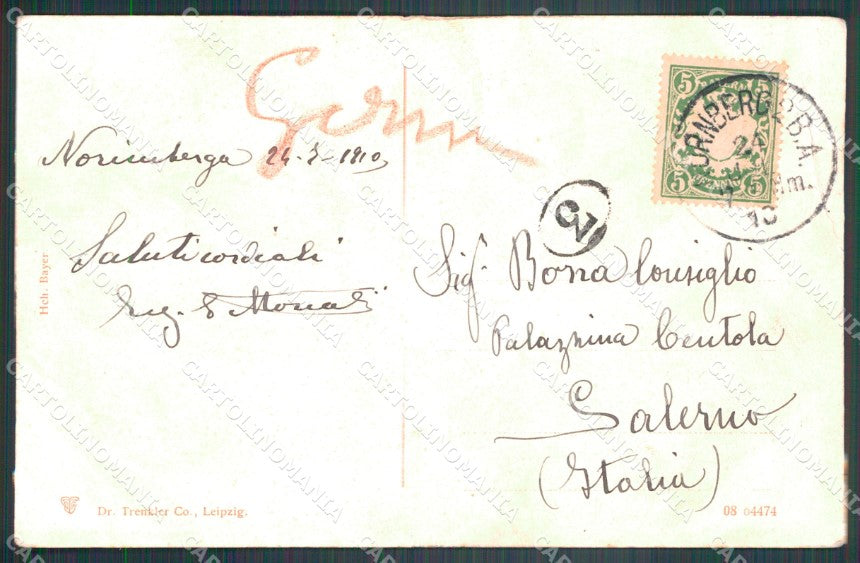 Norimberga 24-3-1910
Saluti cordiali
Ing.
Sigr. Bona Consiglio
Palazzina Centola
Salerno
(Italia)
5 5
5 5
URNBERG 2 B.A.
24
Nm.
10
Hch. Bayer
Dr. Trenkler Co., Leipzig.
08 04474
CARTOLINOMANIA